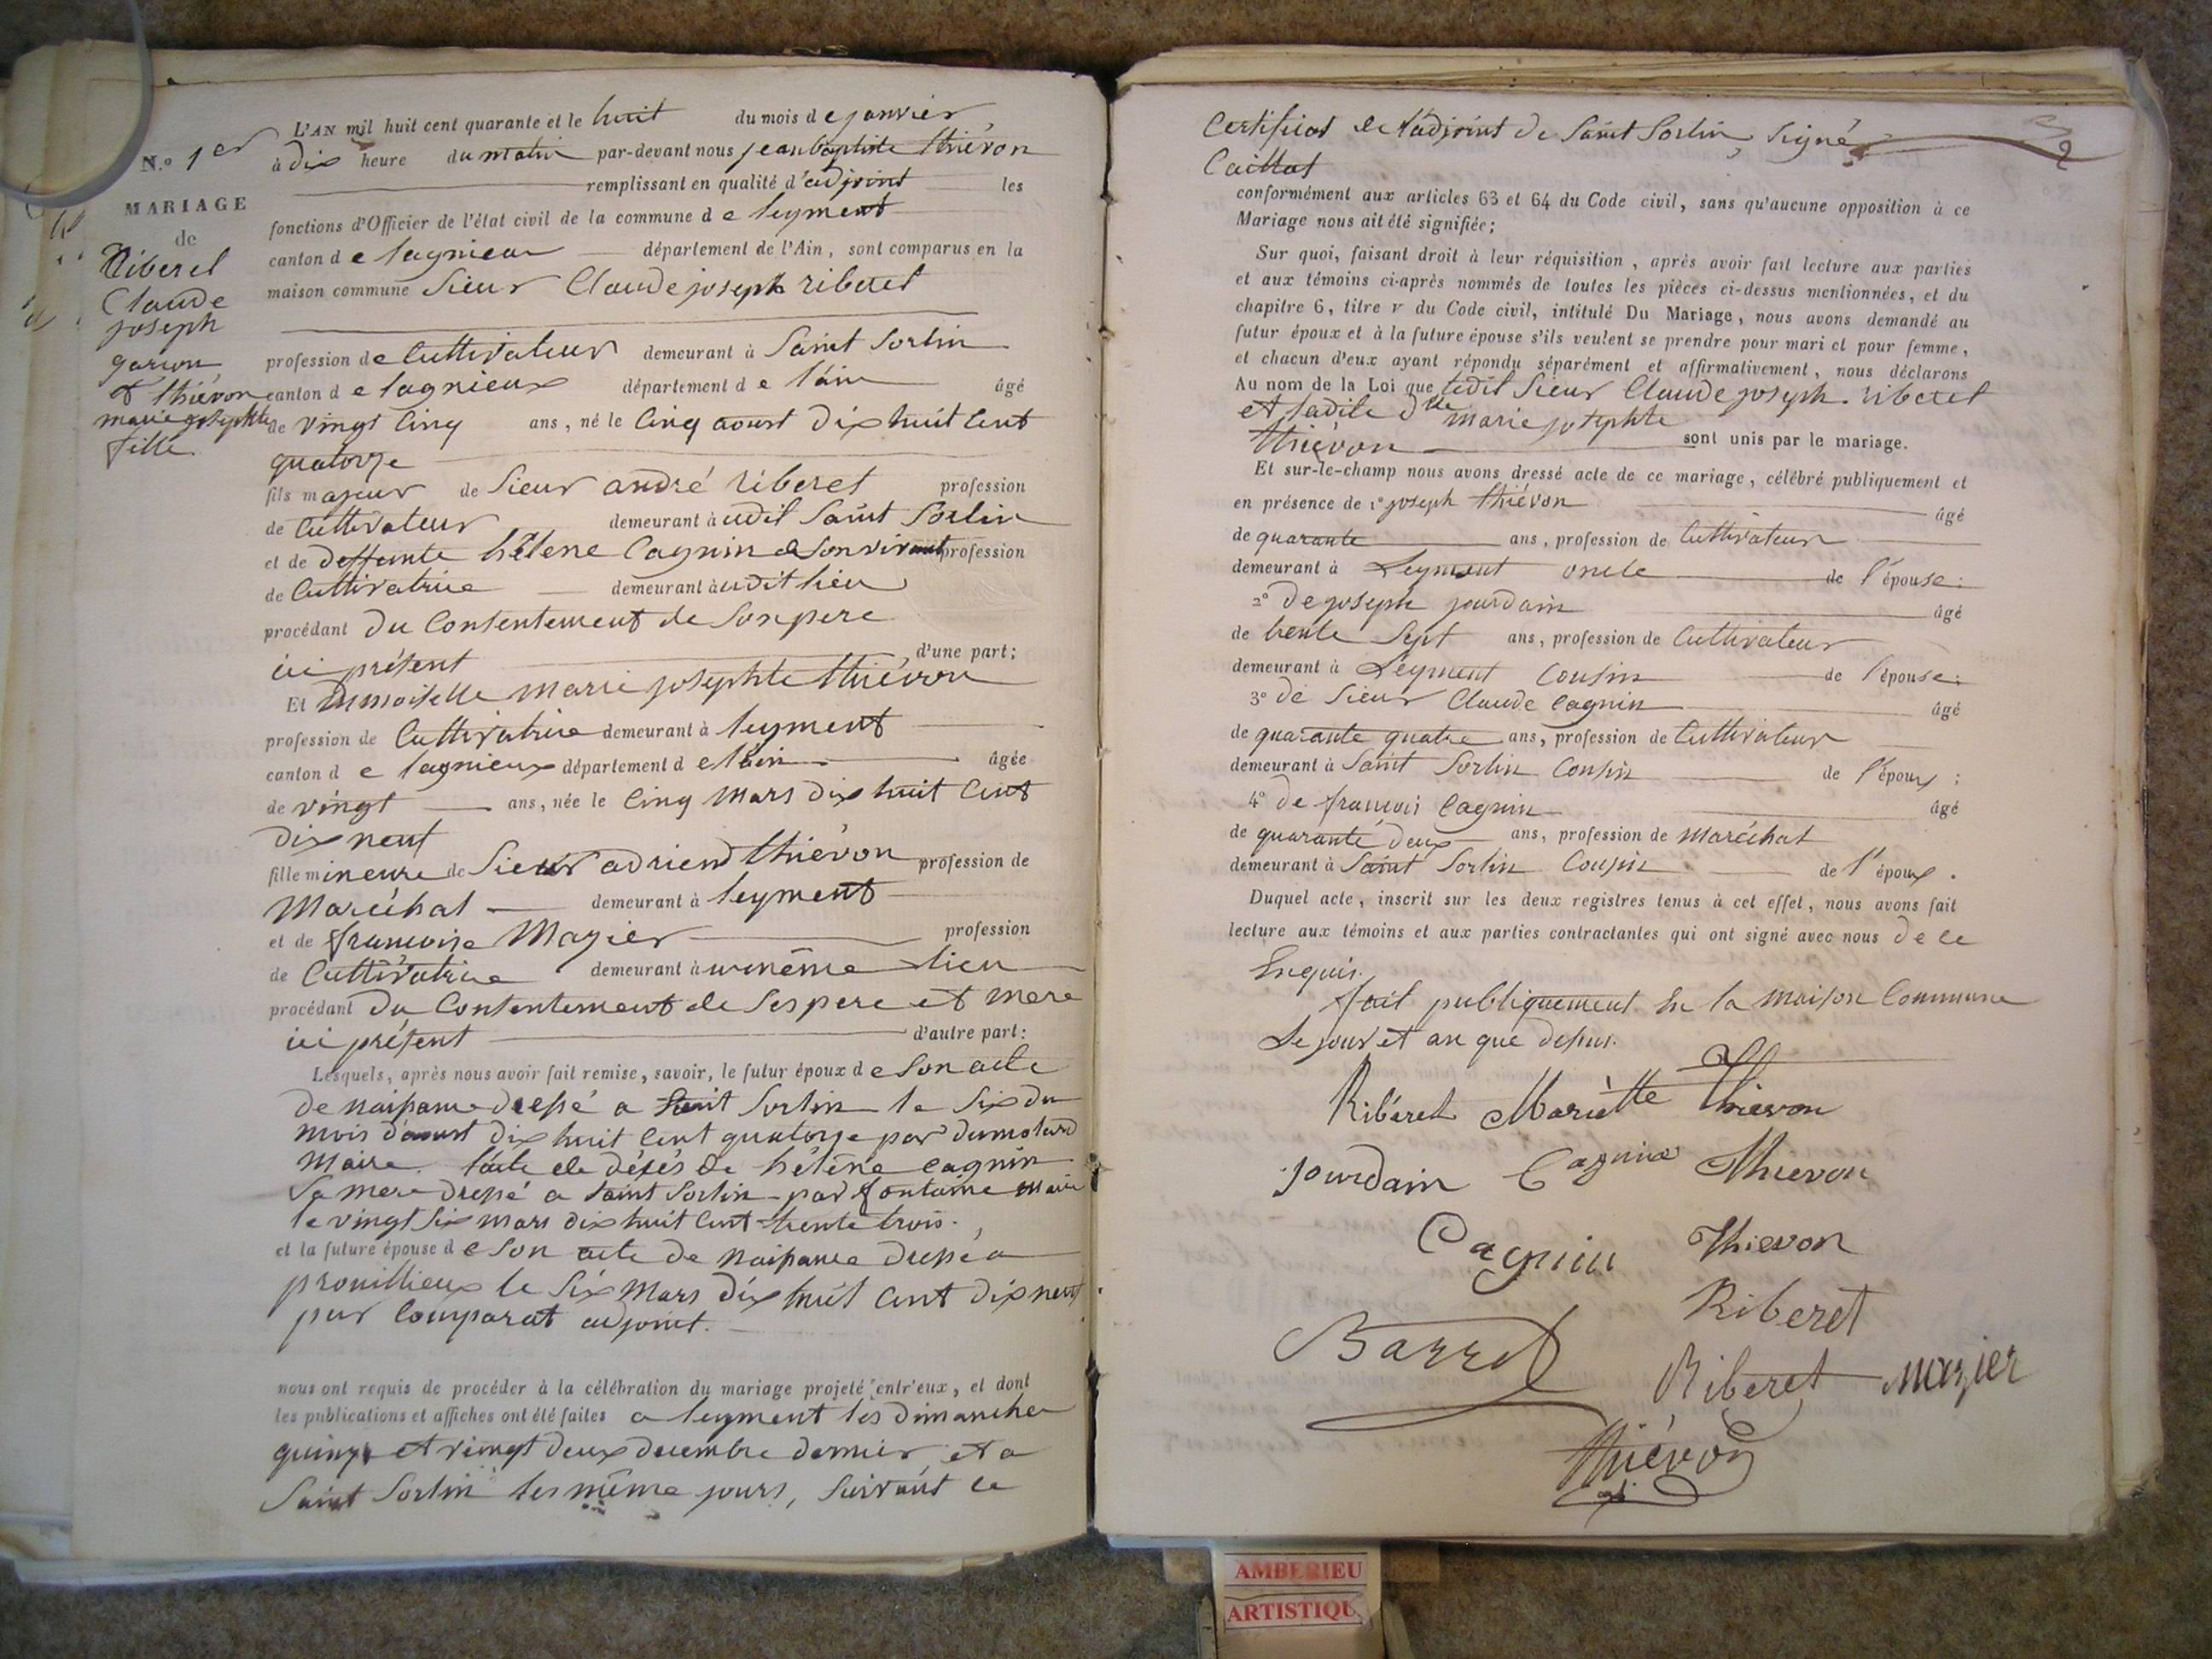 N.o 1er
MARIAGE
de
Riberet
Claude
joseph
garçon
& thiévon
marie josephte
fille
L'AN mil huit cent quarante et le huit du mois de janvier,
à dix heure du matin par-devant nous jean baptiste thiévon
remplissant en qualité d'adjoint les
fonctions d'Officier de l'état civil de la commune de leyment
canton de lagnieu département de l'Ain, sont comparus en la
maison commune Sieur Claude joseph riberet
profession de Cultivateur demeurant à Saint Sorlin
canton de lagnieux département de l'ain âgé
de vingt Cinq ans, né le Cinq aoust dix huit Cent
quatorze
fils majeur de Sieur andré riberet profession
de Cultivateur demeurant à udit Saint Sorlin
et de deffeinte hélene Cagnin de Son vivant profession
de Cultivatrice demeurant à udit lieu
procédant du Contentement de Son pere
ici présent d'une part;
Et demoiselle marie josephte thiévon
profession de Cultivatrice demeurant à leyment
canton de lagnieux département de l'ain âgée
de vingt ans, née le Cinq mars dix huit Cent
dix neuf
fille mineure de Sieur adriend thiévon profession de
Maréchal demeurant à leyment
et de françoise Mazier profession
de Cultivatrice demeurant à u même lieu
procédant du Contentement de Ses pere et mere
ici présent d'autre part:
Lesquels, après nous avoir fait remise, savoir, le futur époux de Son acte
de naissance dressé a Saint Sorlin le Six du
mois d'aoust dix huit Cent quatorze par dumolard
Maire. l'acte de décés de hélène Cagnin
Sa mere dressé a Saint Sorlin par fontaine maire
le vingt Six mars dix huit Cent trente trois.
et la future épouse de Son acte de naissance dressé a
prouillieux le Six mars dix huit Cent dix neuf
par Comparat adjoint.
nous ont requis de procéder à la célébration du mariage projeté entr'eux, et dont
les publications et affiches ont été faites a leyment les dimanches
quinze et vingt deux decembre dernier, et a
Saint Sorlin les même jours, Suivant le
Certificat de l'adjoint de Saint Sorlin, Signé
Caillat
conformément aux articles 63 et 64 du Code civil, sans qu'aucune opposition à ce
Mariage nous ait été signifiée;
Sur quoi, faisant droit à leur réquisition, après avoir fait lecture aux parties
et aux témoins ci-après nommés de toutes les pièces ci-dessus mentionnées, et du
chapitre 6, titre v du Code civil, intitulé Du Mariage, nous avons demandé au
futur époux et à la future épouse s'ils veulent se prendre pour mari et pour femme,
et chacun d'eux ayant répondu séparément et affirmativement, nous déclarons
Au nom de la Loi que ledit Sieur Claude joseph riberet
et ladite dlle marie josephte
thiévon sont unis par le mariage.
Et sur-le-champ nous avons dressé acte de ce mariage, célébré publiquement et
en présence de 1° joseph thiévon âgé
de quarante ans, profession de Cultivateur
demeurant à Leyment oncle de l'épouse:
2° de joseph jourdain âgé
de trente Sept ans, profession de Cultivateur
demeurant à Leyment Cousin de l'épouse:
3° de Sieur Claude Cagnin âgé
de quarante quatre ans, profession de Cultivateur
demeurant à Saint Sorlin Cousin de l'époux;
4° de françois Cagnin âgé
de quarante deux ans, profession de Maréchal
demeurant à Saint Sorlin Cousin de l'époux.
Duquel acte, inscrit sur les deux registres tenus à cet effet, nous avons fait
lecture aux témoins et aux parties contractantes qui ont signé avec nous de ce
Enquis.
fait publiquement En la maison Commune
Le jour et an que dessus.
Riberet Mariette Thievon
Jourdain Cagnin Thievon
Cagnin Thievon
Riberet
Barrel
Riberet mazier
Thiévon
adj.
AMBERIEU
ARTISTIQU